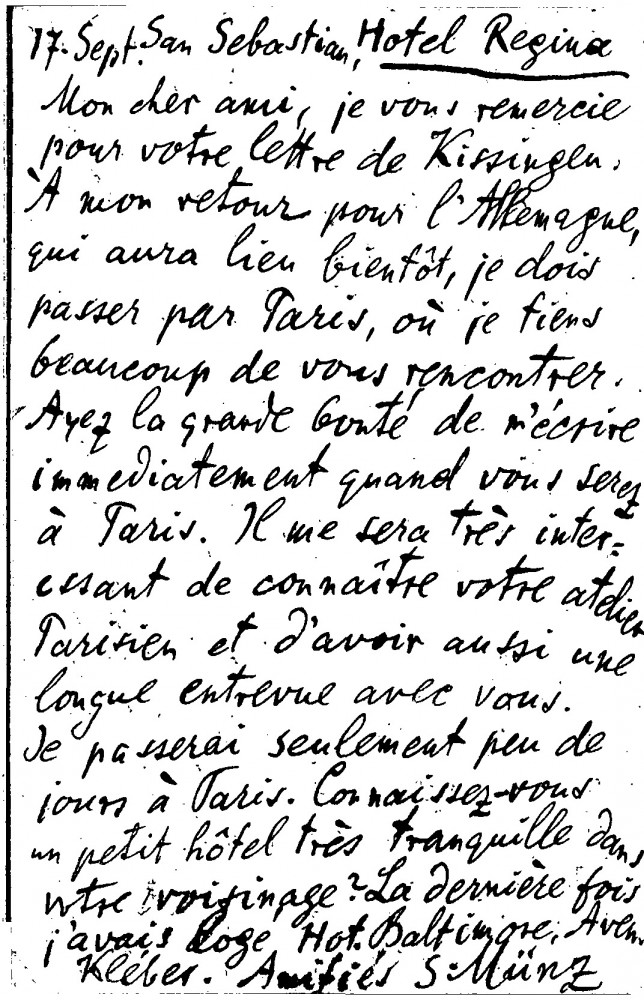 17. Sept. San Sebastian, Hotel Regina
Mon cher ami, je vous remercie
pour votre lettre de Kissingen.
À mon retour pour l'Allemagne,
qui aura lieu bientôt, je dois
passer par Paris, où je tiens
beaucoup de vous rencontrer.
Ayez la grande bonté de m'écrire
immediatement quand vous serez
à Paris. Il me sera très inter=
essant de connaître votre atelier
Parisien et d'avoir aussi une
longue entrevue avec vous.
Je passerai seulement peu de
jours à Paris. Connaissez-vous
un petit hôtel très tranquille dans
votre voisinage? La dernière fois
j'avais loge Hot. Baltimore, Aven.
Kléber. Amitiés S. Münz